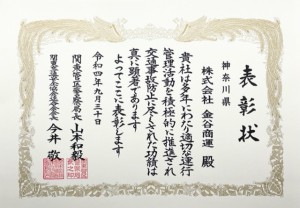 表彰状
神奈川県
株式会社 金谷商運 殿
貴社は多年にわたり適切な運行
管理活動を積極的に推進され
交通事故防止に尽くされた功績は
真に顕著であります
よってここに表彰します
令和四年九月三十日
関東管区警察局長 山本和毅
今井 敬